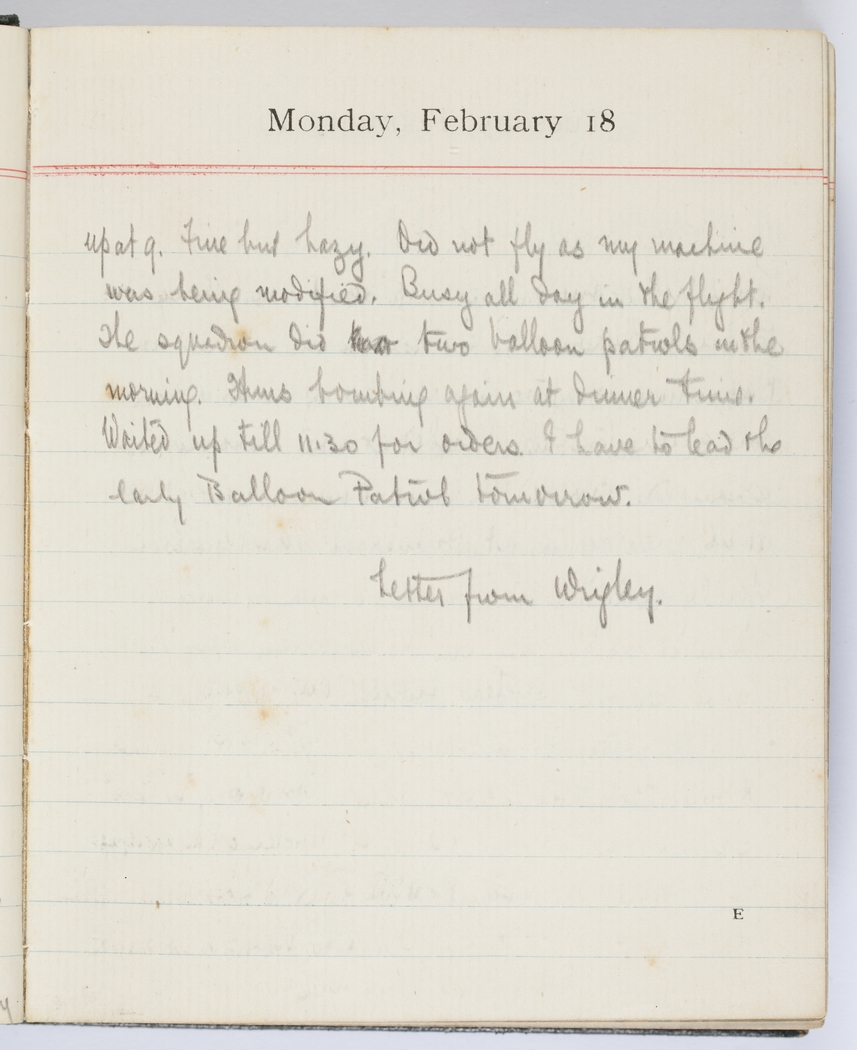 Monday, February 18
up at 9. Fine but hazy. Did not fly as my machine
was being modified. Busy all day in the flight.
The squadron did two balloon patrols in the
morning. Huns bombing again at dinner time.
Waited up till 11.30 for orders. I have to lead the
early Balloon Patrol tomorrow.
Letter from Wrigley.
E